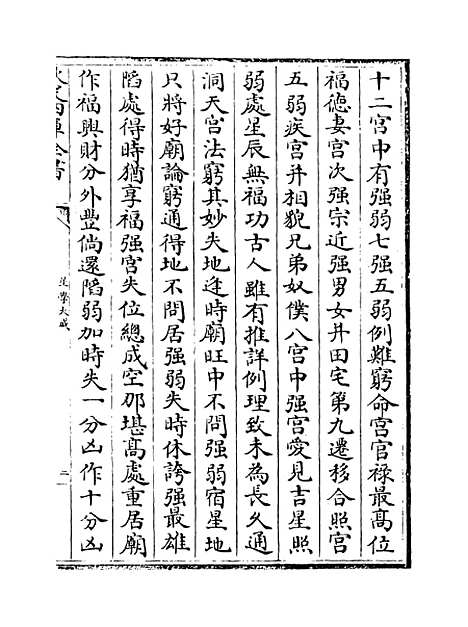 十二宮中有强弱七强五弱例難窮命宮官禄最髙位
福德妻宮次强宗近强男女并田宅第九遷移合照宮
五弱疾宮并相貌兄弟奴僕八宮中强宮愛見吉星照
弱處星辰無福功古人雖有推詳例理致未為長久通
洞天宫法窮其妙失地逢時廟旺中不問强弱宿星地
只將好廟論窮通得地不問居强弱失時休誇强最雄
陷處得時猶享福强宮失位總成空那堪髙處重居廟
作福興財分外豐倘還陷弱加時失一分凶作十分凶
星學大成